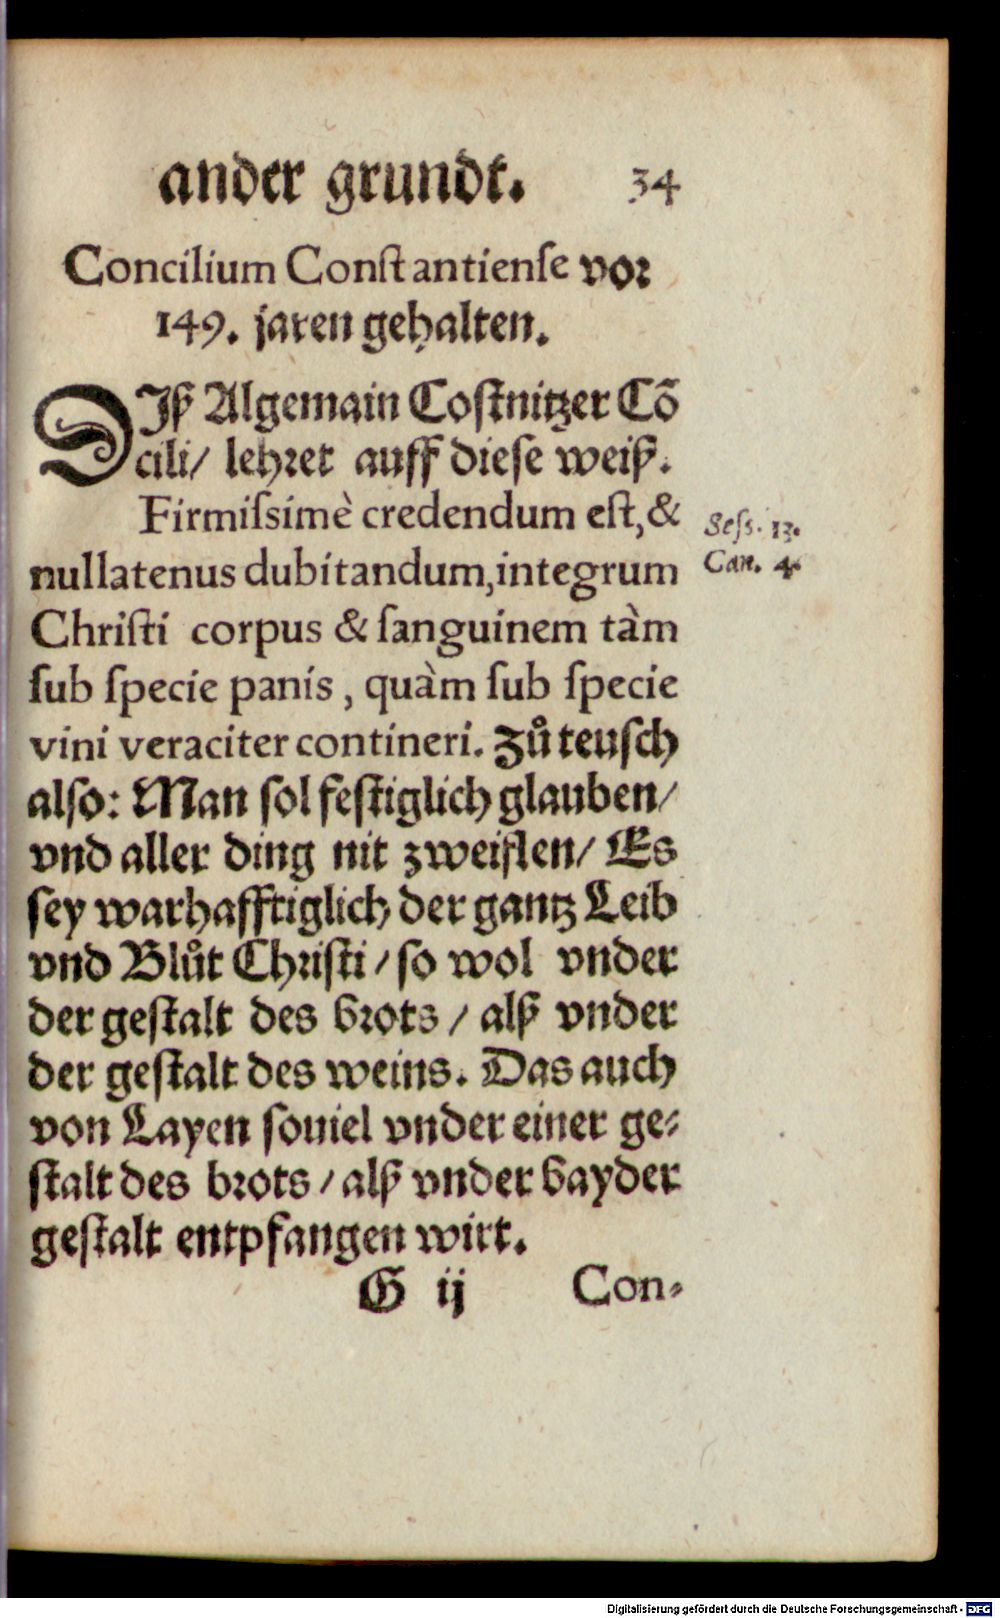 ander grundt. 34
Concilium Conſtantienſe vor
149. jaren gehalten.
DIß Algemain Coſtnitzer Cõ
cili/ lehret auff dieſe weiß.
Firmiſsimè credendum eſt, &
Seſs. 13.
nullatenus dubitandum, integrum
Can. 4.
Chriſti corpus & ſanguinem tàm
ſub ſpecie panis, quàm ſub ſpecie
vini veraciter contineri. Zů teuſch
alſo: Man ſol feſtiglich glauben/
vnd aller ding nit zweiflen/ Es
ſey warhafftiglich der gantz Leib
vnd Blůt Chriſti/ ſo wol vnder
der geſtalt des brots/ alß vnder
der geſtalt des weins. Das auch
von Layen ſouiel vnder einer ge⸗
ſtalt des brots/ alß vnder bayder
geſtalt entpfangen wirt.
G ij Con⸗
Digitalisierung gefördert durch die Deutsche Forschungsgemeinschaft - DFG